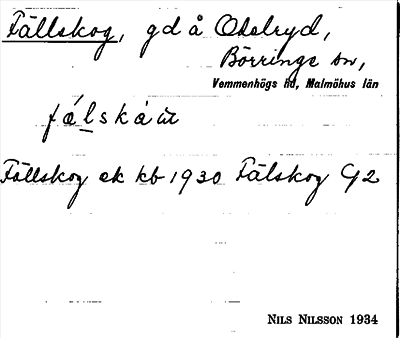 Fällskog, gd å Oselryd,
Börringe sn,
Vemmenhögs hd, Malmöhus län
Fällskog ek kb 1930 Fälskog G2
NILS NILSSON 1934